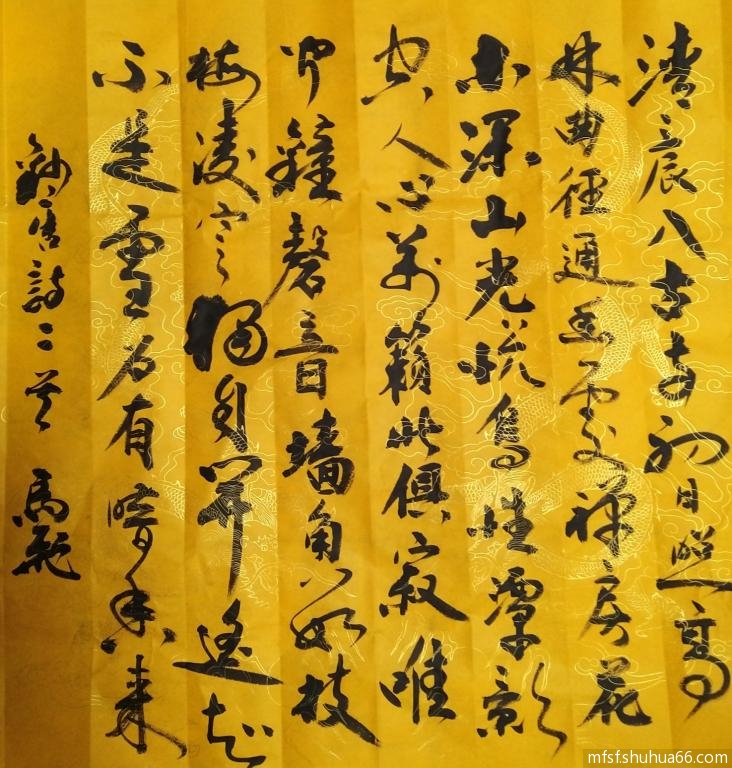 清辰入古寺初日照高
林曲徑通幽處禅房花
木深山光悦鳥性潭影
空人心萬籟此俱寂唯
聞鐘磬音墙角数枝
梅凌寒獨自開遥知
不是雪为有暗香来
鈔唐詩二首 馬飛
mfsf.shuhua66.com